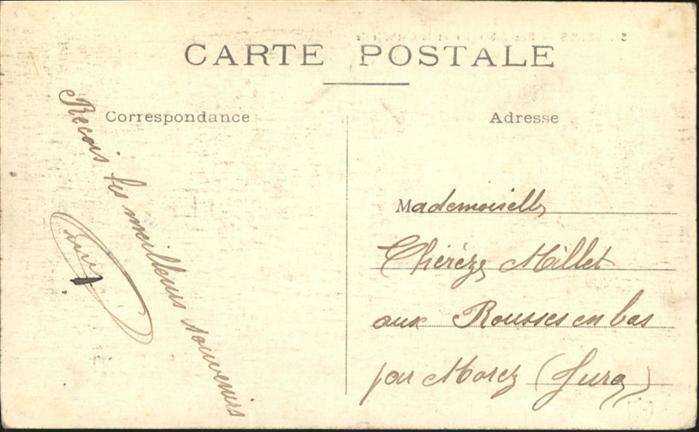 CARTE POSTALE
Correspondance
Adresse
Recois les meilleurs souvenirs
Mademoiselle
Thérèze Millet
aux Rousses en bas
par Morez (Jura)